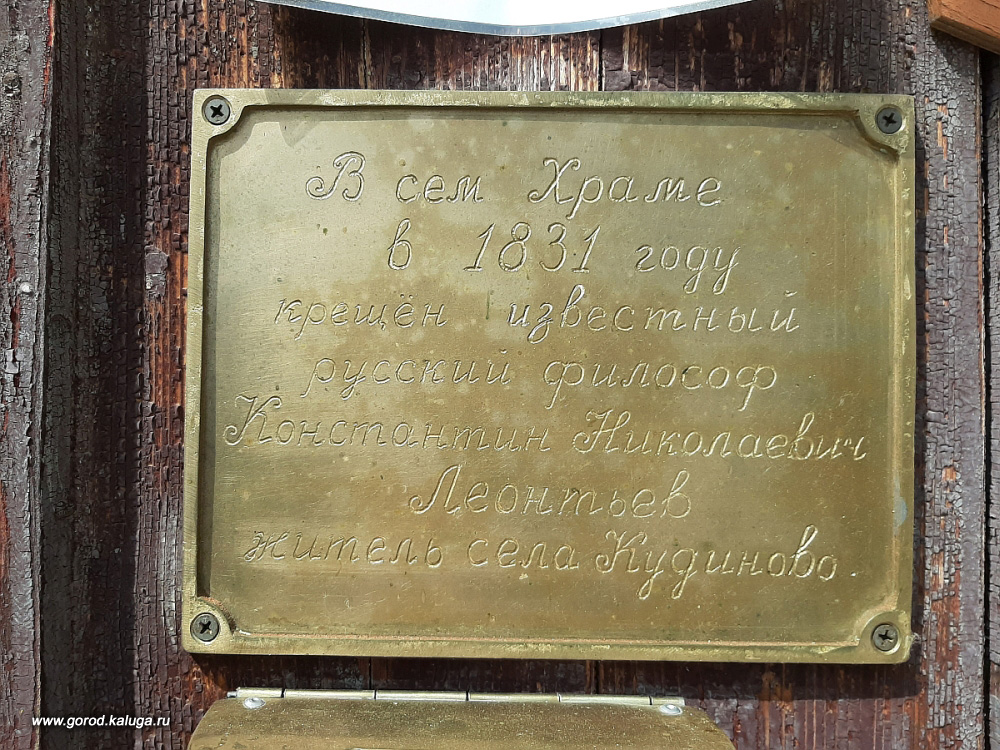 В сем Храме
в 1831 году
крещён известный
русский философ
Константин Николаевич
Леонтьев
житель села Кудиново.
www.gorod.kaluga.ru